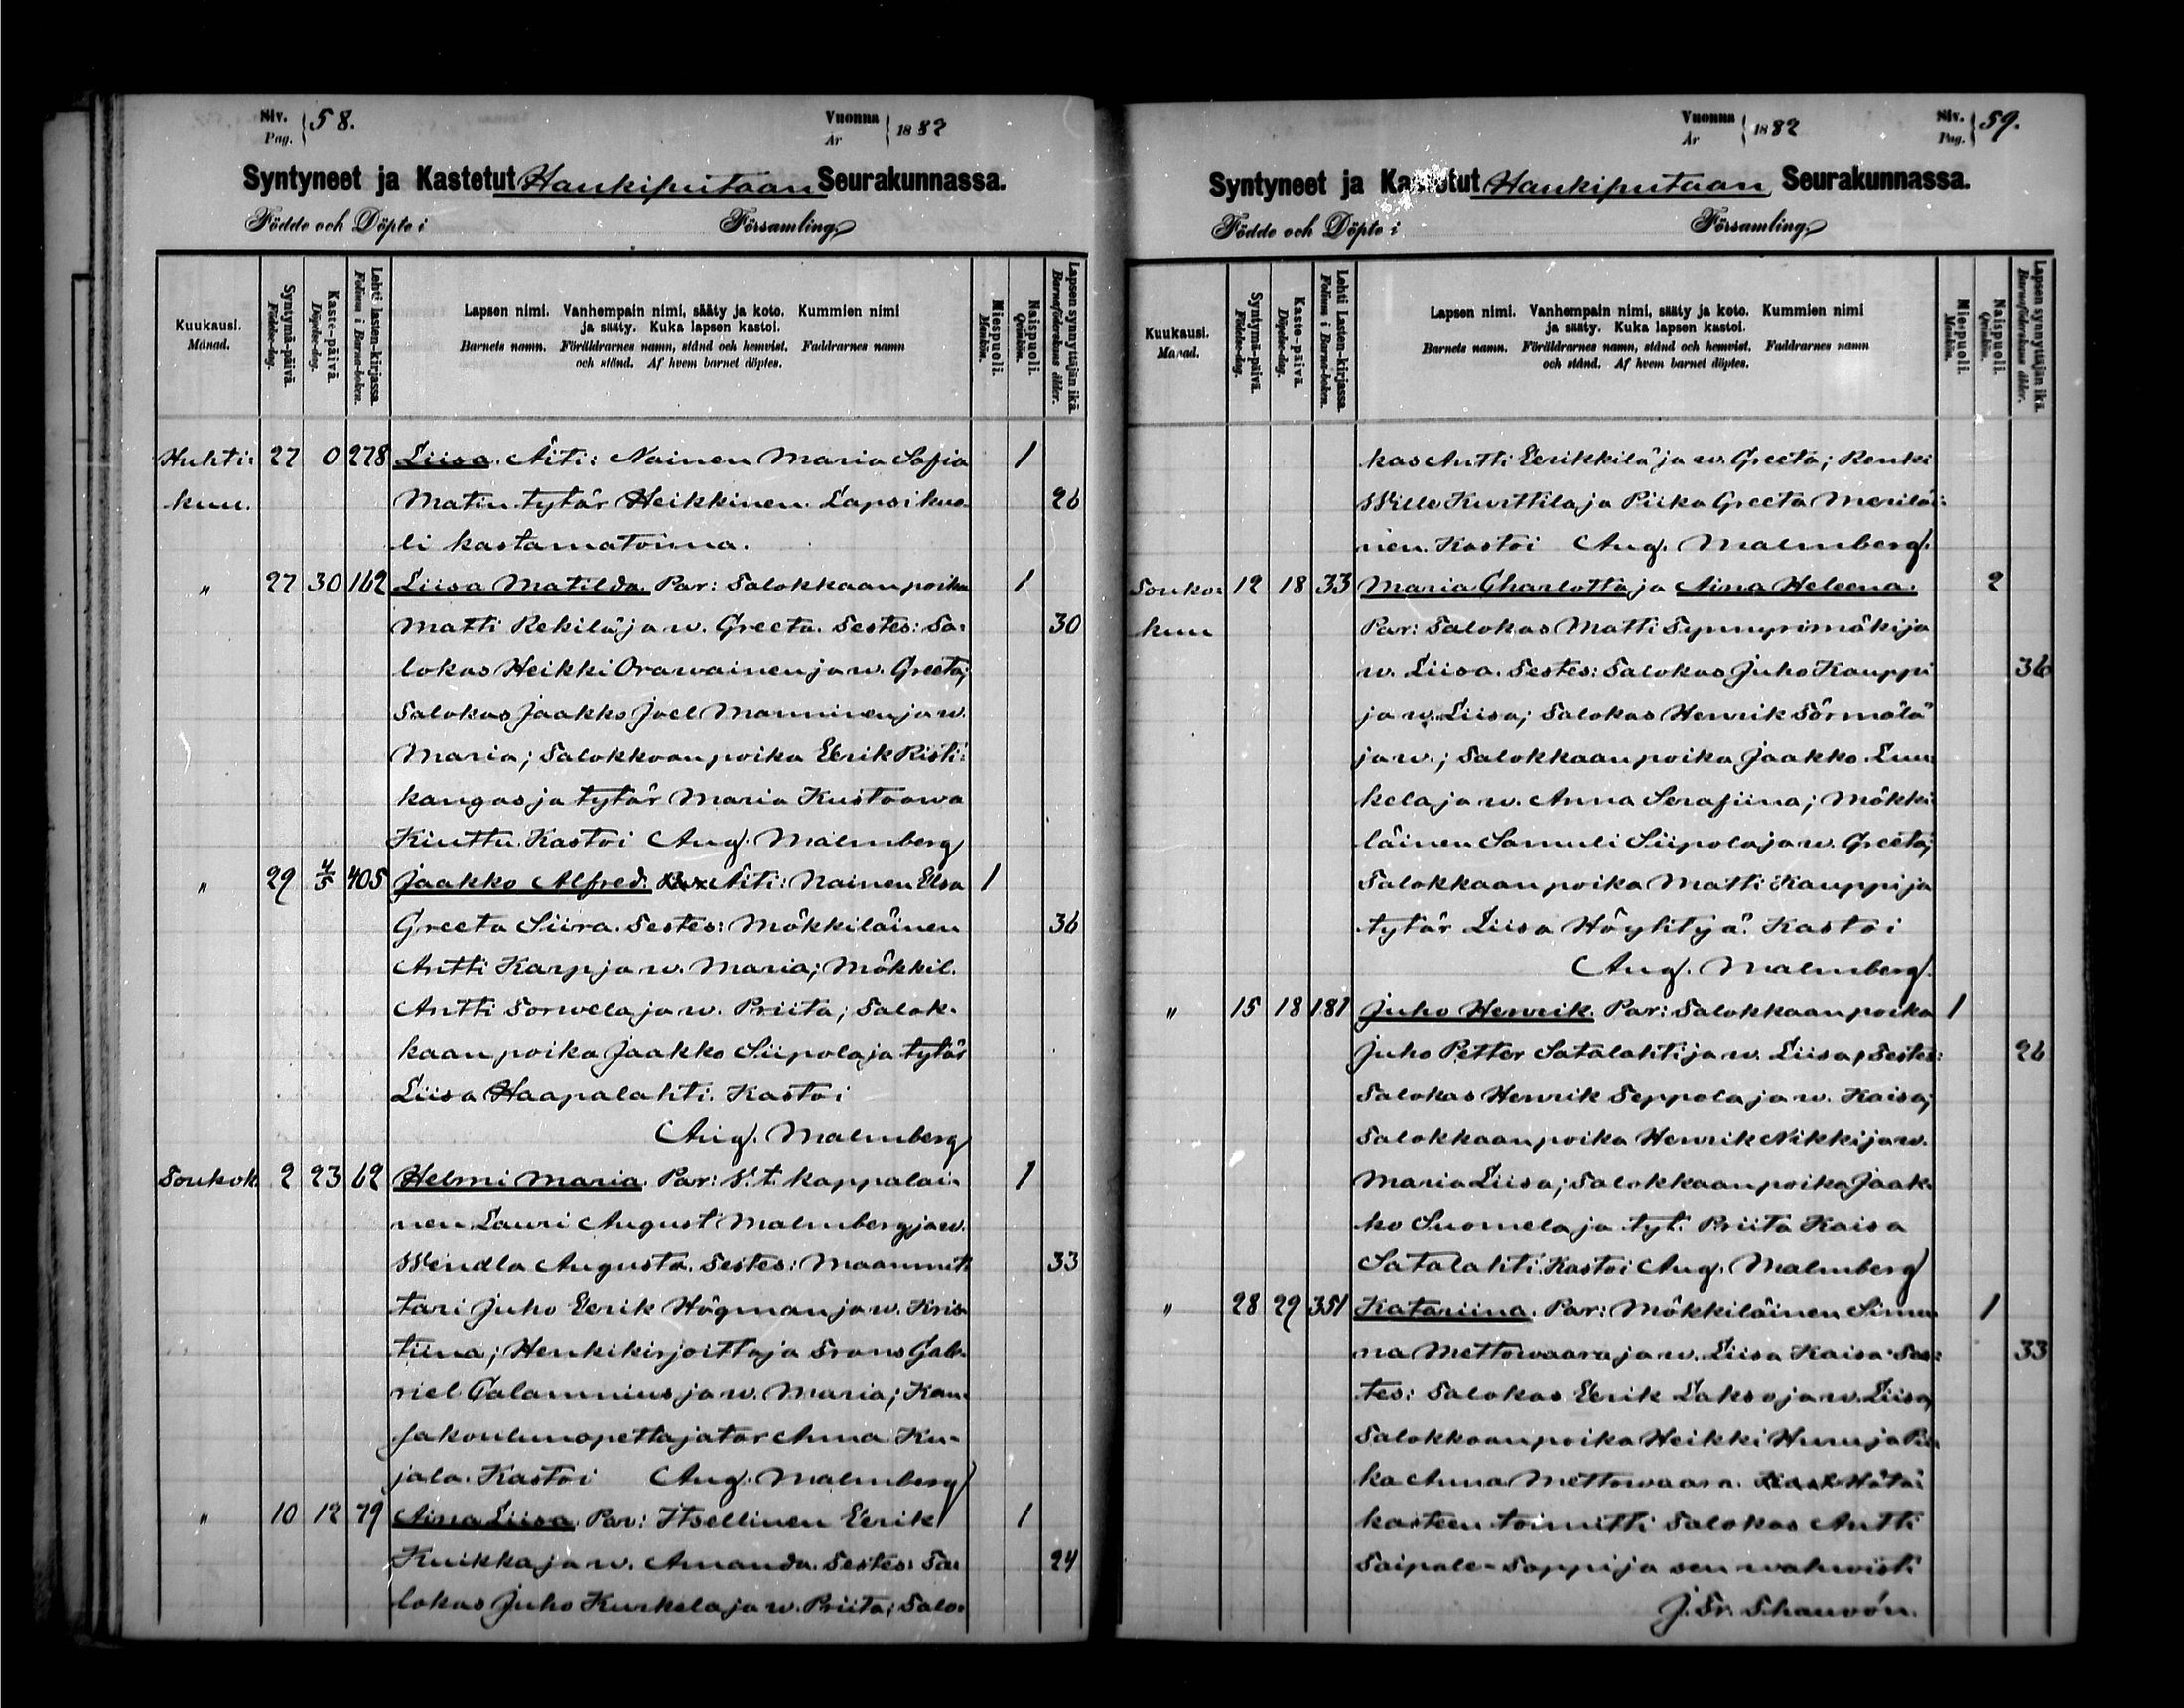 Siv. Pag. 58.
Vuonna År 1882
Syntyneet ja Kastetut Haukiputaan Seurakunnassa.
Födde och Döpte i Församling
Kuukausi. Månad.
Syntymä-päivä. Födelse-dag.
Kaste-päivä. Döpelse-dag.
Lehti lasten-kirjassa. Folium i Barna-boken.
Lapsen nimi. Vanhempain nimi, sääty ja koto. Kummien nimi
ja sääty. Kuka lapsen kastoi.
Barnets namn. Föräldrarnes namn, stånd och hemvist. Faddrarnes namn
och stånd. Af hvem barnet döptes.
Miespuoli. Mankön.
Naispuoli. Qvinkön.
Lapsen synnyttäjän ikä. Barnaföderskans ålder.
Huhti: 27 0 278 Liisa. Äiti: Nainen Maria Sofia 1
kuu. Matin tytär Heikkinen. Lapsi kuo- 26
li kastamatoinna.
" 27 30 162 Liisa Matilda. Par: Salokkaan poika 1
Matti Rekilä ja w. Greeta. Testes: Ta- 30
lokas Heikki Orawainen ja w. Greeta;
Talokas Jaakko Joel Manninen ja w.
Maria; Talokkaan poika Eerik Risti:
kangas ja tytär Maria Kustaawa
Kinttu. Kastoi Aug. Malmberg
" 29 4/5 405 Jaakko Alfred. Äiti: Nainen Elsa 1
Greeta Siira. Testes: Mökkiläinen 36
Antti Karp ja w. Maria; Mökkil.
Antti Sorwela ja w. Priita; Talok-
kaan poika Jaakko Siipola ja tytär
Liisa Haapalahti. Kastoi
Aug. Malmberg
Toukok. 2 23 62 Helmi Maria. Par: V. t. kappalai- 1
nen Lauri August Malmberg ja w.
Wendla Augusta. Testes: Maanmit- 33
tari Juho Eerik Högman ja w. Kris-
tiina; Henkikirjoittaja Frans Gab-
riel Calamnius ja w. Maria; Kan-
sakoulunopettajatar Anna Ku-
jala. Kastoi Aug. Malmberg
" 10 12 79 Aina Liisa. Par: Itsellinen Eerik 1
Kuikka ja w. Amanda. Testes: Ta- 24
lokas Juho Kurkela ja w. Priita; Talo-
Vuonna År 1882
Siv. Pag. 59.
Syntyneet ja Kastetut Haukiputaan Seurakunnassa.
Födde och Döpte i Församling
Kuukausi. Månad.
Syntymä-päivä. Födelse-dag.
Kaste-päivä. Döpelse-dag.
Lehti Lasten-kirjassa. Folium i Barna-boken.
Lapsen nimi. Vanhempain nimi, sääty ja koto. Kummien nimi
ja sääty. Kuka lapsen kastoi.
Barnets namn. Föräldrarnes namn, stånd och hemvist. Faddrarnes namn
och stånd. Af hvem barnet döptes.
Miespuoli. Mankön.
Naispuoli. Qvinkön.
Lapsen synnyttäjän ikä. Barnaföderskans ålder.
kas Antti Eerikkilä ja w. Greeta; Renki
Wille Kurttila ja Piika Greeta Meriläi:
nen. Kastoi Aug. Malmberg.
Touko: 12 18 33 Maria Charlotta ja Aina Heleena. 2
kuu Par: Talokas Matti Synnyrimäki ja
w. Liisa. Testes: Talokas Juho Kauppi 36
ja w. Liisa; Talokas Henrik Törmälä
ja w.; Talokkaan poika Jaakko Luu-
kela ja w. Anna Serafiina; Mökki-
läinen Samuli Siipola ja w. Greeta;
Talokkaan poika Matti Kauppi ja
tytär Liisa Höyhtyä. Kastoi
Aug. Malmberg.
" 15 18 181 Juho Henrik. Par: Talokkaan poika 1
Juho Petter Satalahti ja w. Liisa, Testes: 26
Talokas Henrik Seppola ja w. Kaisa;
Talokkaan poika Henrik Nikki ja w.
Maria Liisa; Talokkaan poika Jaak-
ko Suomela ja tyt. Priita Kaisa
Satalahti. Kastoi Aug. Malmberg
" 28 29 351 Katariina. Par: Mökkiläinen Simu- 1
na Mettowaara ja w. Liisa Kaisa. Tes: 33
tes: Talokas Eerik Lakso ja w. Liisa,
Talokkaan poika Heikki Huru ja Pii-
ka Anna Mettowaara. Hätä
kasteen toimitti Talokas Antti
Saipale-Soppi ja sen wahwisti
J. Fr. Thauvón.